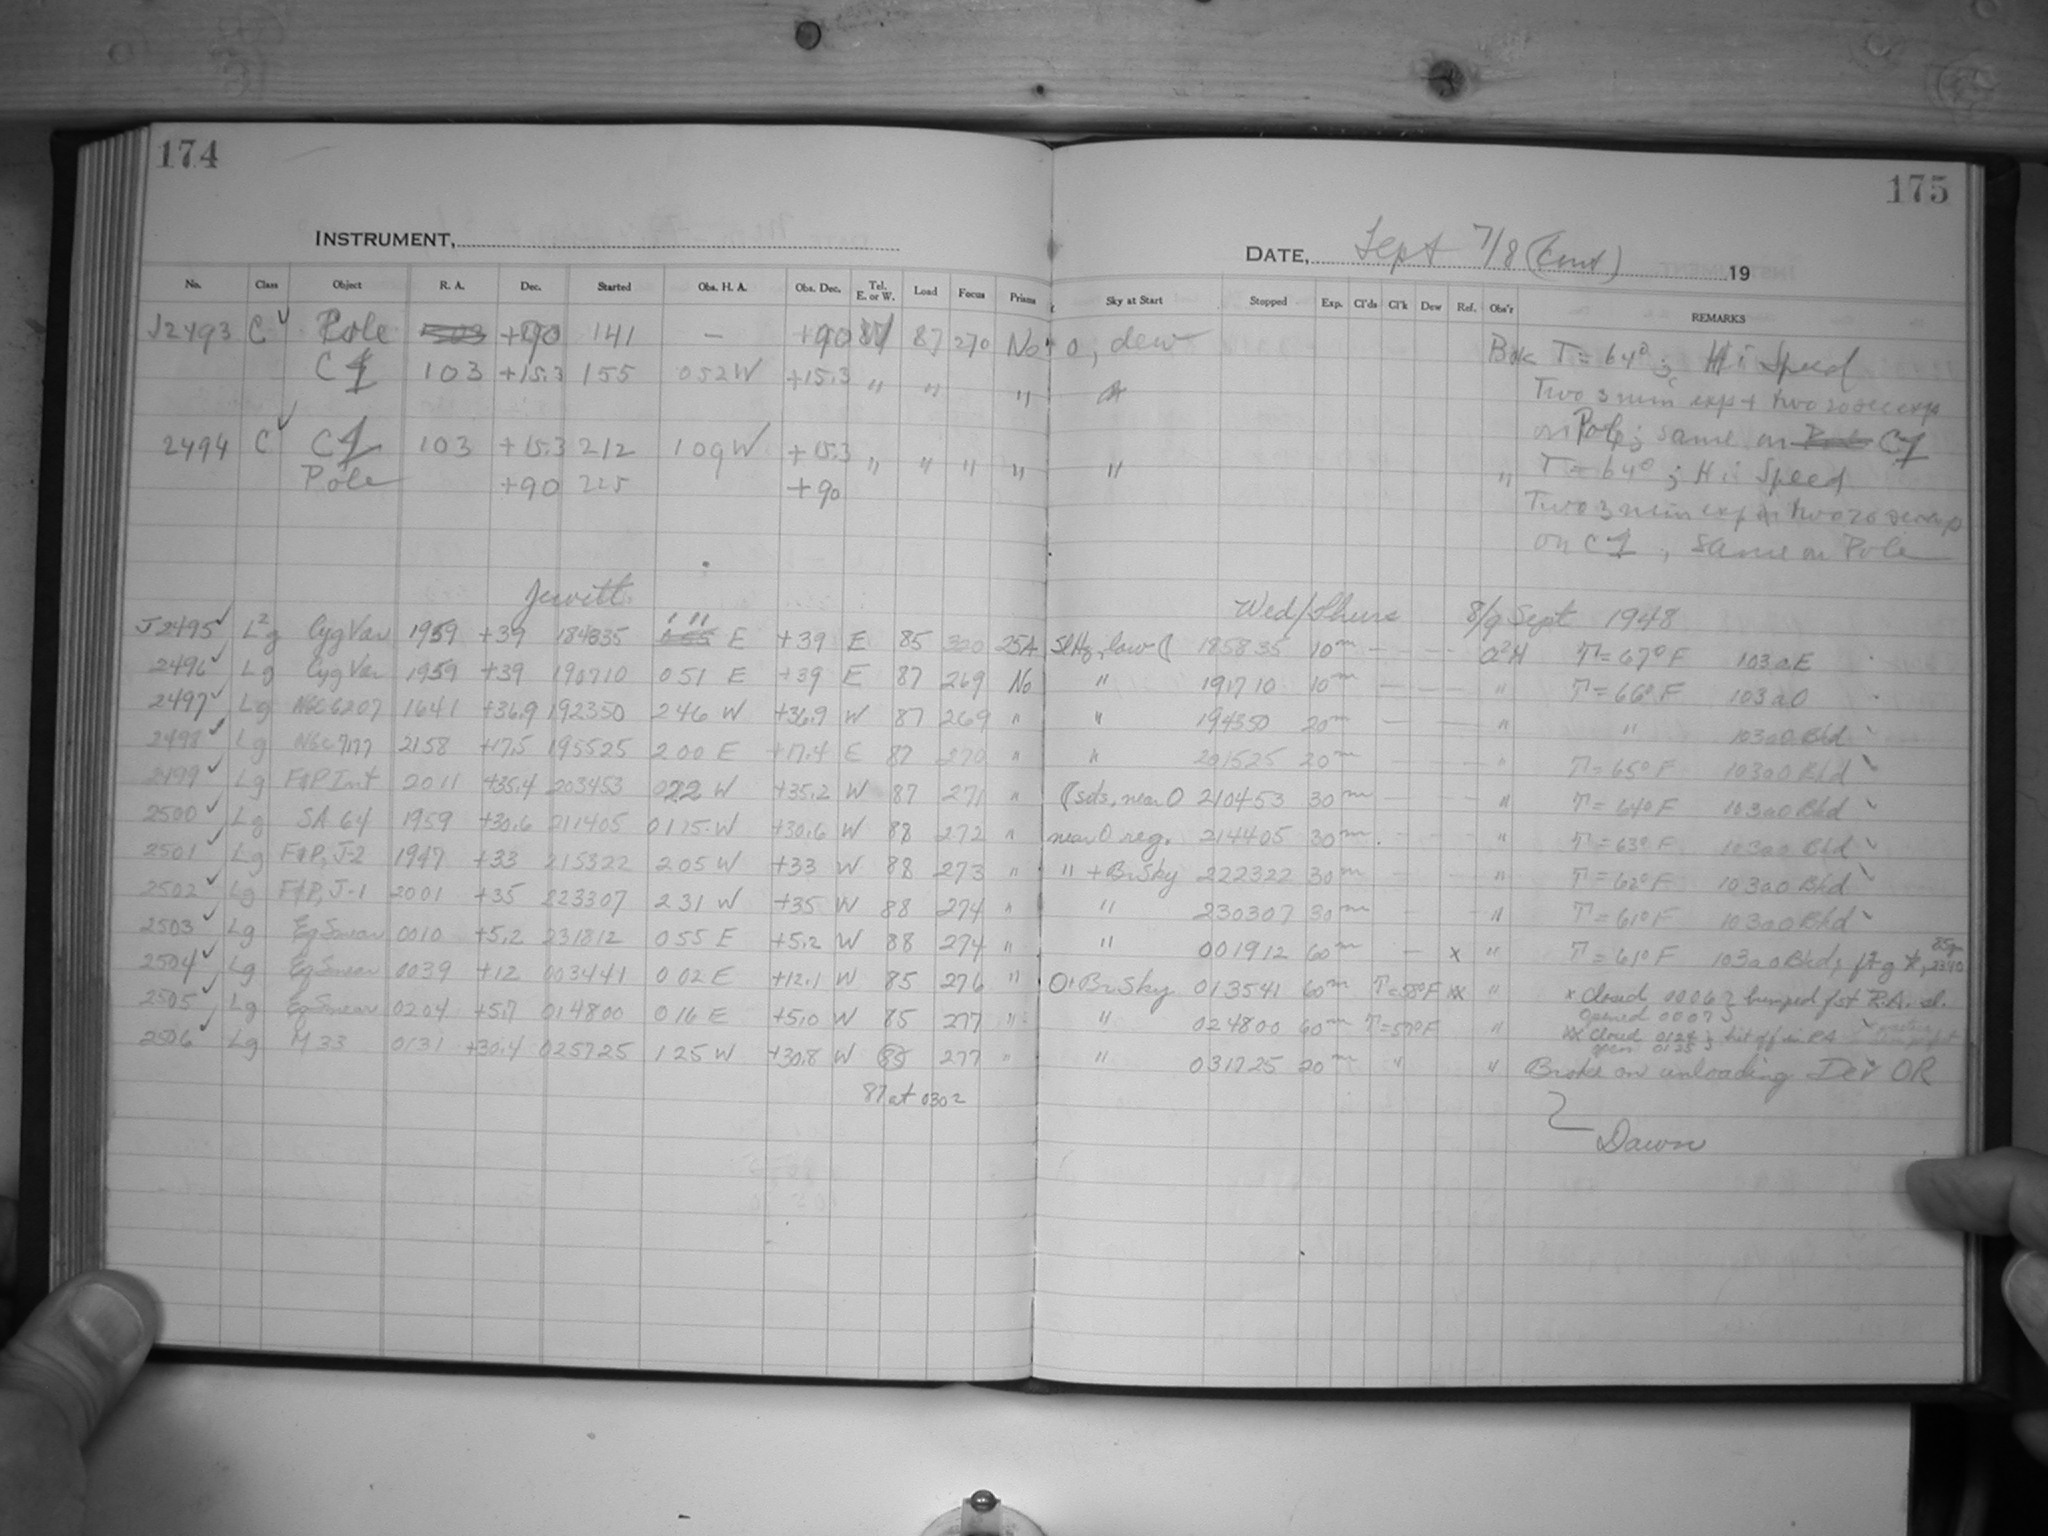 174
175
INSTRUMENT,
DATE, Sept 7/8 (Cont) 19
No. Class Object R. A. Dec. Started Obs. H. A. Obs. Dec. Tel. E. or W. Load Focus Prism Sky at Start Stopped Exp. Cl'ds Cl'k Dew Ref. Obs'r REMARKS
J2493 C ✓ Pole +90 141 — +90 W 87 270 No 0, dew T = 64°; Hi Speed
C1 103 +15.3 155 052W +15.3 " " " Two 3 min exp + two 20 sec exp
on Pole; same on C1
2494 C ✓ C1 103 +15.3 212 109W +15.3 " " " " " " T = 64°; Hi Speed
Pole +90 225 +90 Two 3 min exp two 20 sec exp
on C1, same on Pole
Jewett Wed/Thurs 8/9 Sept 1948
J2495 ✓ L²g Cyg Var 1959 +39 184835 1 11 E +39 E 85 320 25A Sl Hz, low ( 185835 10m — — — a²H T = 67°F 103aE
2496 ✓ Lg Cyg Var 1959 +39 190710 051 E +39 E 87 269 No " 191710 10m — — — " T = 66°F 103aO
2497 ✓ Lg NGC6207 1641 +36.9 192350 246 W +36.9 W 87 269 " " 194350 20m — — " " 103aO Bkd ✓
2498 ✓ Lg NGC7177 2158 +17.5 195525 200 E +17.4 E 87 270 " " 201525 20m — — — " T = 65°F 103aO Bkd ✓
2499 ✓ Lg F&P Int 2011 +35.4 203453 022 W +35.2 W 87 271 " (sets, near O 210453 30m — — " T = 64°F 103aO Bkd ✓
2500 ✓ Lg SA 64 1959 +30.6 211405 0125 W +30.6 W 88 272 " near O reg. 214405 30m — — — " T = 63°F 103aO Bkd ✓
2501 ✓ Lg F&P, J-2 1947 +33 215322 205 W +33 W 88 273 " " + Br Sky 222322 30m — — — " T = 62°F 103aO Bkd ✓
2502 ✓ Lg F&P, J-1 2001 +35 223307 231 W +35 W 88 274 " " 230307 30m — — " T = 61°F 103aO Bkd ✓
2503 ✓ Lg Eq Smear 0010 +5.2 231812 055 E +5.2 W 88 274 " " 001912 60m — x " T = 61°F 103aO Bkd,
2504 ✓ Lg Eq Smear 0039 +12 003441 002 E +12.1 W 85 276 " O, Br Sky 013541 60m T = 58°F xx " x Closed 0006 } bumped
Opened 0007 }
2505 ✓ Lg Eq Smear 0204 +5.7 014800 016 E +5.0 W 85 277 " " 024800 60m T = 57°F " xx Closed 0124 }
open 0125 }
2506 ✓ Lg M 33 0131 +30.4 025725 125 W +30.8 W 85 277 " " 031725 20m " " Broke on unloading Dev OR
87 at 0302
Dawn